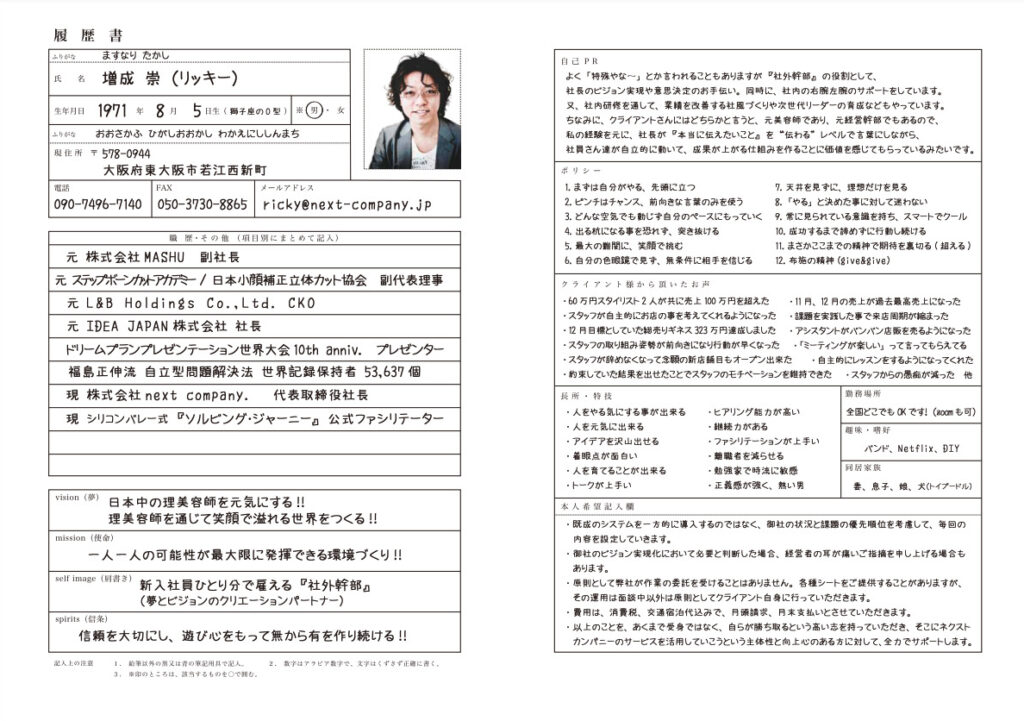 履歴書
ふりがな ますなり たかし
氏 名 増成 崇 (リッキー)
生年月日 1971 年 8 月 5 日生 (獅子座のO型) ※ 男 ・ 女
ふりがな おおさかふ ひがしおおかし わかえにししんまち
現住所 〒578-0944
大阪府東大阪市若江西新町
電話 FAX メールアドレス
090-7496-7140 050-3730-8865 ricky@next-company.jp
職 歴・その他 (項目別にまとめて記入)
元 株式会社MASHU 副社長
元 ステップボーンカットアカデミー / 日本小顔補正立体カット協会 副代表理事
元 L&B Holdings Co.,Ltd. CKO
元 IDEA JAPAN株式会社 社長
ドリームプランプレゼンテーション世界大会10th anniv. プレゼンター
福島正伸流 自立型問題解決法 世界記録保持者 53,637個
現 株式会社next company. 代表取締役社長
現 シリコンバレー式『ソルビング・ジャーニー』公式ファシリテーター
vision (夢) 日本中の理美容師を元気にする!!
理美容師を通じて笑顔で溢れる世界をつくる!!
mission (使命)
一人一人の可能性が最大限に発揮できる環境づくり!!
self image (肩書き) 新入社員ひとり分で雇える『社外幹部』
(夢とビジョンのクリエーションパートナー)
spirits (信条)
信頼を大切にし、遊び心をもって無から有を作り続ける!!
記入上の注意 1. 鉛筆以外の黒又は青の筆記用具で記入。 2. 数字はアラビア数字で、文字はくずさず正確に書く。
3. ※印のところは、該当するものを〇で囲む。
自己PR
よく「特殊やな〜」とか言われることもありますが『社外幹部』の役割として、
社長のビジョン実現や意思決定のお手伝い。同時に、社内の右腕左腕のサポートをしています。
又、社内研修を通して、業績を改善する社風づくりや次世代リーダーの育成などもやっています。
ちなみに、クライアントさんにはどちらかと言うと、元美容師であり、元経営幹部でもあるので、
私の経験を元に、社長が『本当に伝えたいこと』を“伝わる”レベルで言葉にしながら、
社員さん達が自立的に動いて、成果が上がる仕組みを作ることに価値を感じてもらっているみたいです。
ポリシー
1. まずは自分がやる、先頭に立つ 7. 天井を見ずに、理想だけを見る
2. ピンチはチャンス、前向きな言葉のみを使う 8. 「やる」と決めた事に対して迷わない
3. どんな空気でも動じず自分のペースにもっていく 9. 常に見られている意識を持ち、スマートでクール
4. 出る杭になる事を恐れず、突き抜ける 10. 成功するまで諦めずに行動し続ける
5. 最大の難関に、笑顔で挑む 11. まさかここまでの精神で期待を裏切る(超える)
6. 自分の色眼鏡で見ず、無条件に相手を信じる 12. 布施の精神(give&give)
クライアント様から頂いたお声
・60万円スタイリスト2人が共に売上100万円を超えた ・11月、12月の売上が過去最高売上になった
・スタッフが自主的にお店の事を考えてくれるようになった ・課題を実践した事で来店周期が縮まった
・12月目標としていた総売りギネス323万円達成しました ・アシスタントがバンバン店販を売るようになった
・スタッフの取り組み姿勢が前向きになり行動が早くなった ・「ミーティングが楽しい」って言ってもらえてる
・スタッフが辞めなくなって念願の新店舗目もオープン出来た ・自主的にレッスンをするようになってくれた
・約束していた結果を出せたことでスタッフのモチベーションを維持できた ・スタッフからの愚痴が減った 他
長所・特技 勤務場所
・人をやる気にする事が出来る ・ヒアリング能力が高い 全国どこでもOKです!(zoomも可)
・人を元気に出来る ・継続力がある
・アイデアを沢山出せる ・ファシリテーションが上手い 趣味・嗜好
・着眼点が面白い ・離職者を減らせる バンド、Netflix、DIY
・人を育てることが出来る ・勉強家で時流に敏感 同居家族
・トークが上手い ・正義感が強く、熱い男 妻、息子、娘、犬(トイプードル)
本人希望記入欄
・既成のシステムを一方的に導入するのではなく、御社の状況と課題の優先順位を考慮して、毎回の
内容を設定していきます。
・御社のビジョン実現化において必要と判断した場合、経営者の耳が痛いご指摘を申し上げる場合も
あります。
・原則として弊社が作業の委託を受けることはありません。各種シートをご提供することがありますが、
その運用は面談中以外は原則としてクライアント自身に行っていただきます。
・費用は、消費税、交通宿泊代込みで、月額請求、月末支払いとさせていただきます。
・以上のことを、あくまで受身ではなく、自らが勝ち取るという高い志を持っていただき、そこにネクスト
カンパニーのサービスを活用していこうという主体性と向上心のある方に対して、全力でサポートします。